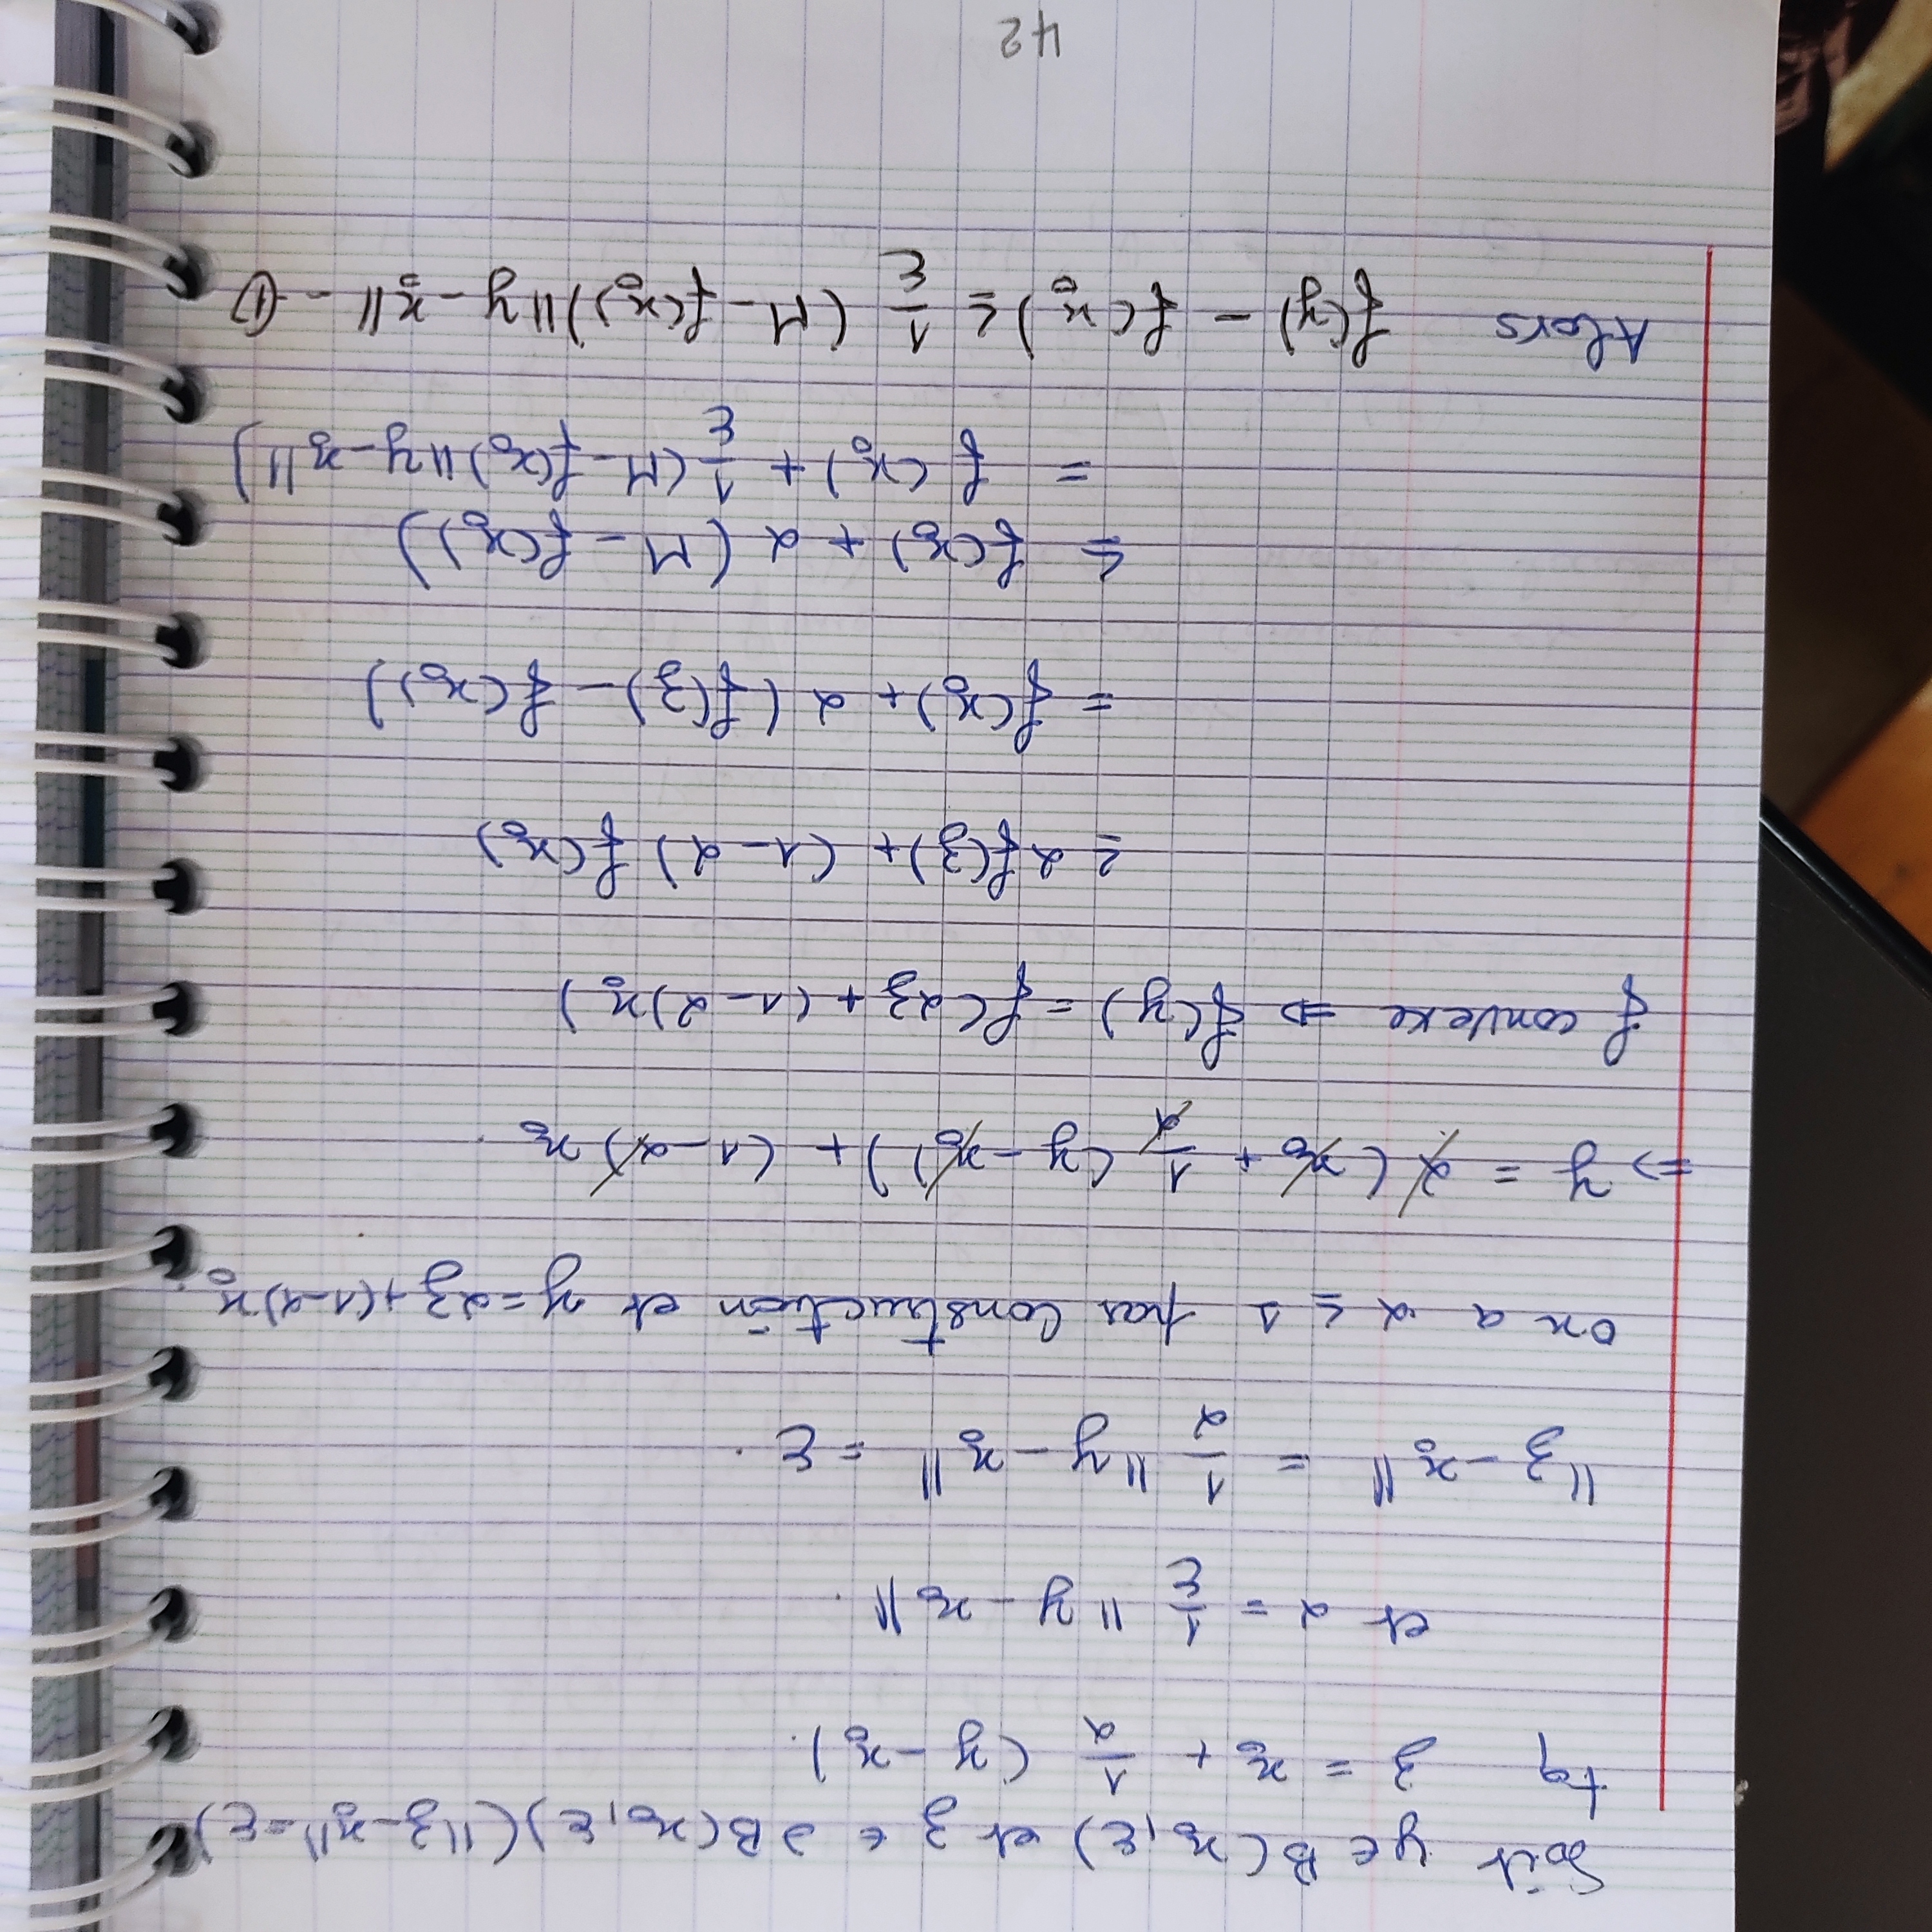 Soit y ∈ B(x₀, ε) et z ∈ ∂B(x₀, ε) (‖z - x₀‖ = ε)
tq z = x₀ + 1/α (y - x₀).
et α = 1/ε ‖y - x₀‖.
‖z - x₀‖ = 1/α ‖y - x₀‖ = ε.
on a α ≤ 1 par construction et y = αz + (1-α)x₀.
⇒ y = α(x₀ + 1/α (y - x₀)) + (1-α)x₀.
f convexe ⇒ f(y) = f(αz + (1-α)x₀)
≥ αf(z) + (1-α) f(x₀)
= f(x₀) + α (f(z) - f(x₀))
≤ f(x₀) + α (M - f(x₀))
= f(x₀) + 1/ε (M - f(x₀) ‖y - x₀‖)
Alors f(y) - f(x₀) ≤ 1/ε (M - f(x₀)) ‖y - x₀‖ -- ①
42